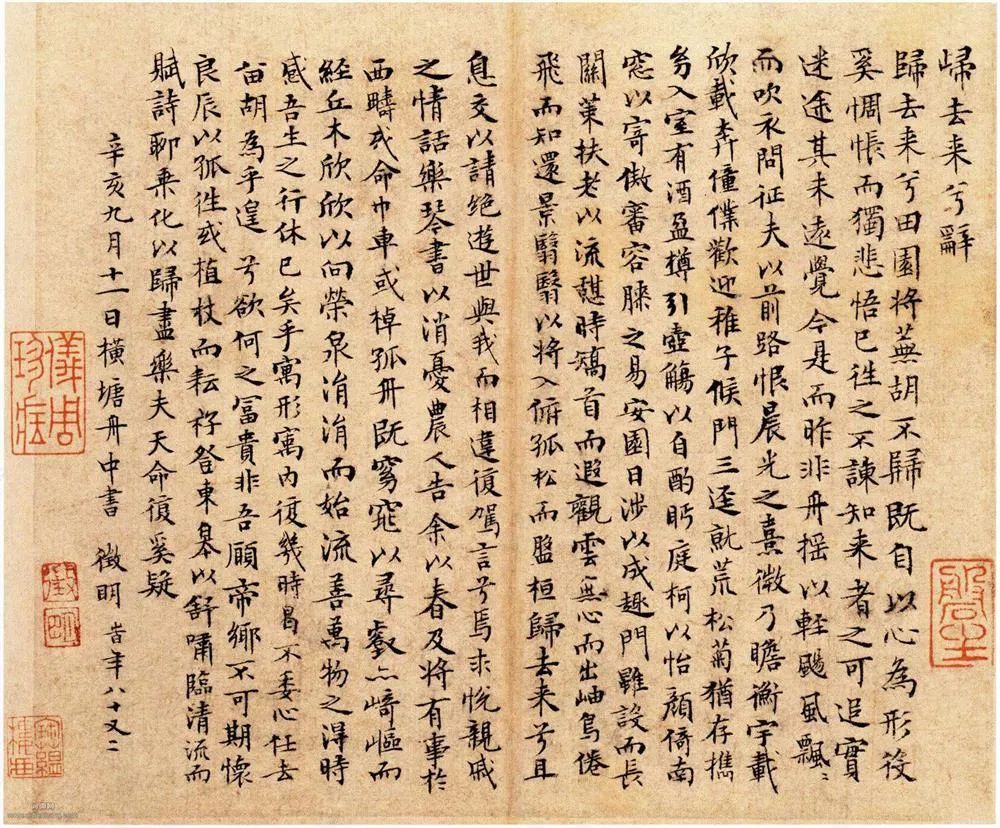 歸去来兮辭
歸去来兮田園将蕪胡不歸既自以心為形役
奚惆悵而獨悲悟已往之不諫知来者之可追實
迷途其未遠覺今是而昨非舟揺以軽颺風飄〻
而吹衣問征夫以前路恨晨光之熹微乃瞻衡宇載
欣載奔僮僕歡迎稚子候門三逕就荒松菊猶存携
幼入室有酒盈樽引壺觴以自酌眄庭柯以怡顔倚南
窓以寄傲審容膝之易安園日涉以成趣門雖設而長
關策扶老以流憩時矯首而遐觀雲無心而出岫鳥倦
飛而知還景翳翳以将入俯孤松而盤桓歸去来兮且
息交以請絶遊世與我而相違復駕言兮焉求悅親戚
之情話樂琴書以消憂農人告余以春及将有事於
西疇或命巾車或棹孤舟既窈窕以尋壑亦崎嶇而
経丘木欣欣以向榮泉涓涓而始流善萬物之得時
感吾生之行休已矣乎寓形寓内復幾時曷不委心任去
留胡為乎遑兮欲何之冨貴非吾願帝鄉不可期懷
良辰以孤往或植杖而耘耔登東皋以舒嘯臨清流而
賦詩聊乘化以歸盡樂夫天命復奚疑
辛亥九月十一日横塘舟中書 徵明 峕年八十又二
徵明
儀周珍藏